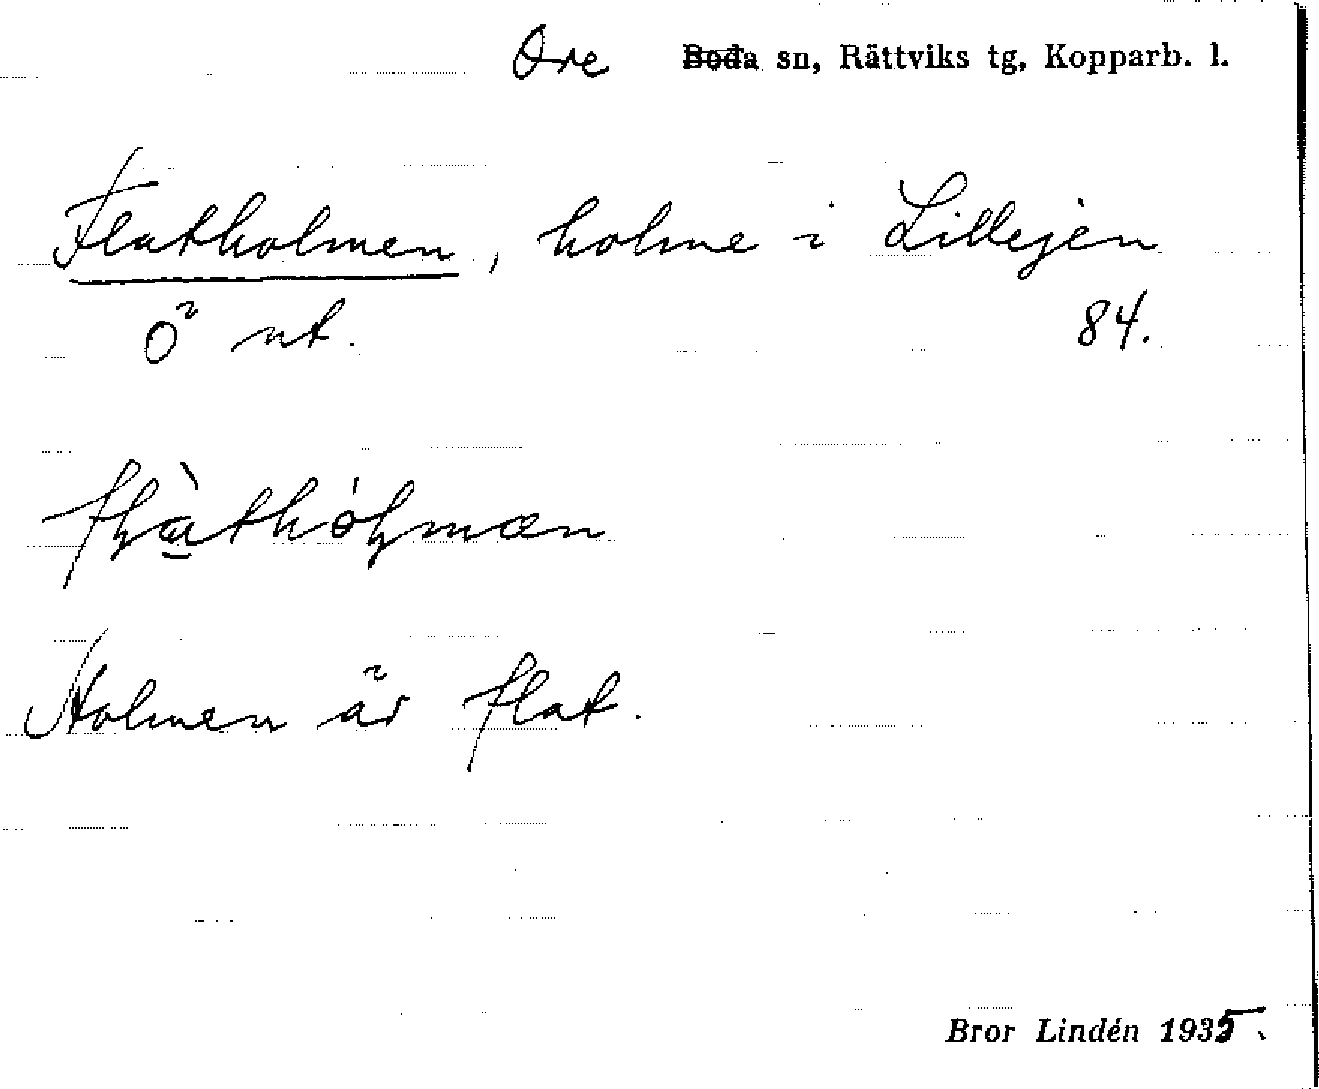 Ore Boda sn, Rättviks tg, Kopparb. l.
Flatholmen, holme i Lillejen
Ö nt. 84.
Holmen är flat.
Bror Lindén 1935.